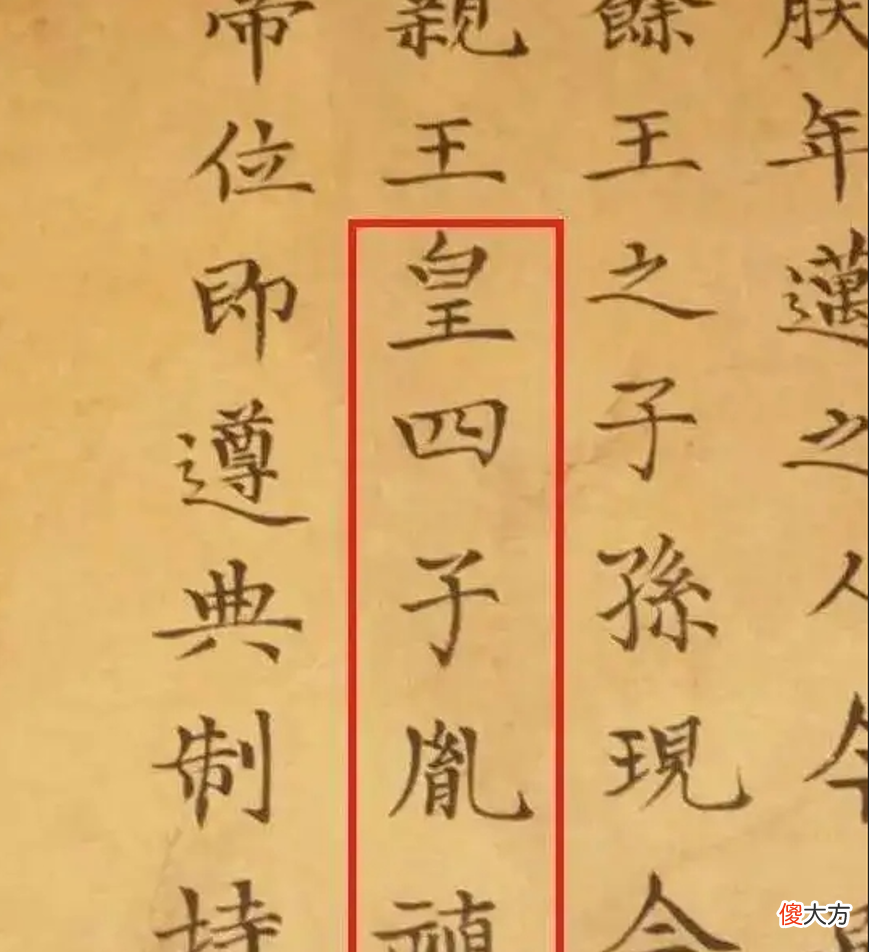 朕年邁之人今
餘王之子孫現今
親王皇四子胤禛
帝位即遵典制持
傻大方